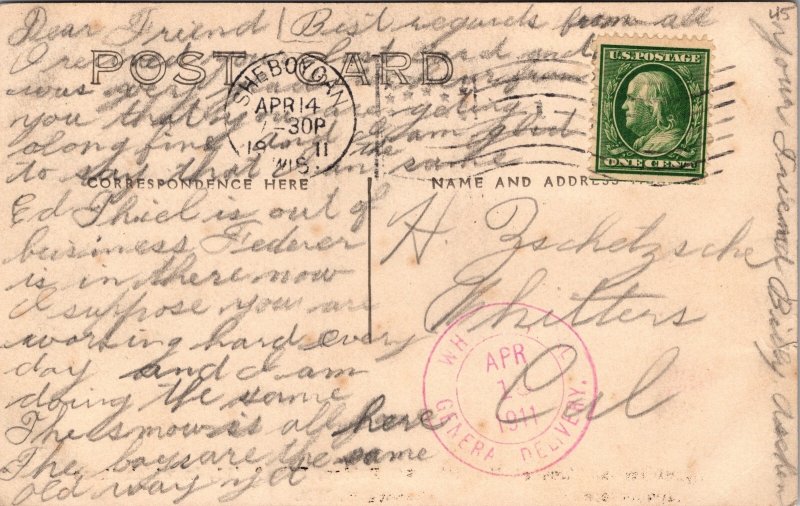 Dear Friend | Best regards from all
I received your last card and
was very glad
you that you
along fine and I am glad
to say that I am the same
POST CARD
SHEBOYGAN
APR 14
7-30P
19 11
WIS.
U.S. POSTAGE
ONE CENT
CORRESPONDENCE HERE
NAME AND ADDRESS
Ed Thiel is out of
business Federer
is in there now
I suppose you are
working hard every
day and I am
doing the same
The snow is all here
The boys are the same
old way yet
H. Zschetzsche
Whitters
Cal
WH
APR
1911
GENERA DELIVERY.
your Friend Billy
45